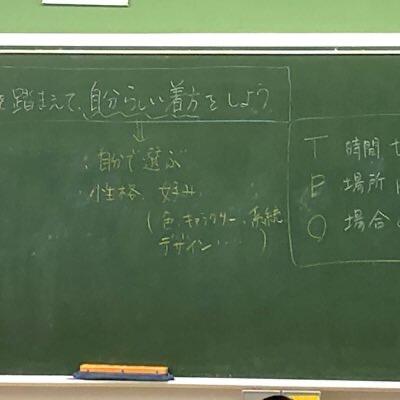 を踏まえて、自分らしい着方をしよう
・自分で選ぶ
・性格、好み
(色、キャラクター、系統
デザイン・・・)
T 時間
P 場所
O 場合